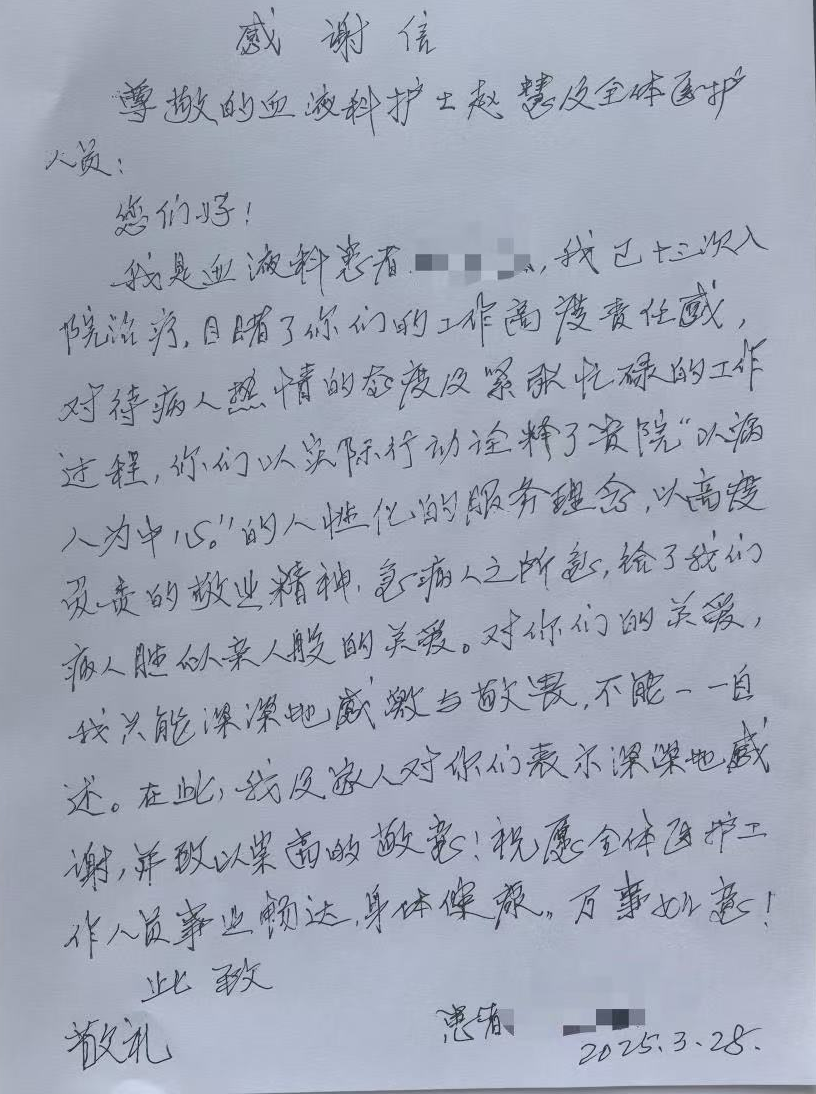 感谢信
尊敬的血液科护士赵慧及全体医护
人员:
您们好!
我是血液科患者,我已十三次入
院治疗,目睹了你们的工作高度责任感,
对待病人热情的态度及紧张忙碌的工作
过程,你们以实际行动诠释了贵院“以病
人为中心。”的人性化的服务理念,以高度
负责的敬业精神,急病人之所急,给了我们
病人胜似亲人般的关爱。对你们的关爱,
我只能深深地感激与敬畏,不能一一自
述。在此,我及家人对你们表示深深地感
谢,并致以崇高的敬意!祝愿全体医护工
作人员事业畅达,身体健康。万事如意!
此致
敬礼
患者
2025.3.28.